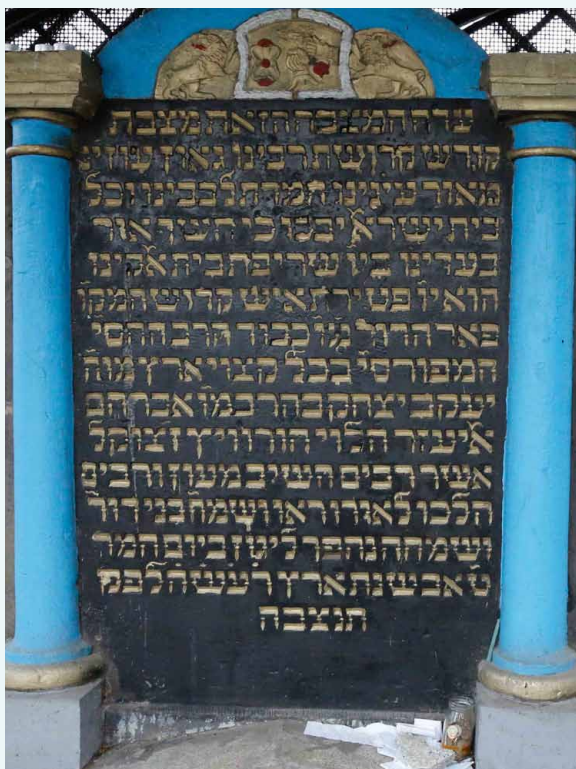 עדה המצבה הזאת מצבת
קודש קדושת רבינו גאון עוזי
מאור עינינו חמדת לבבינו וכל
בית ישראל יבכו כי חשך אור
בעדינו ביו שריפת בית אלקינו
הוא יו פטירת איש קדוש המקו
פאר הדור מו כבוד הרב החסי
המפורסי בכל קצוי ארץ מוה
יעקב יצחק בהר במו אברהם
אליעזר הלוי הורוויץ זצוקל
אשר רבים השיב מעון ורבים
הלכו לאורו ראו ושמח בני דור
ושמחה נהפך ליגון ביום המר
ט אב שנת ארץ רעשה לפק
תנצבה